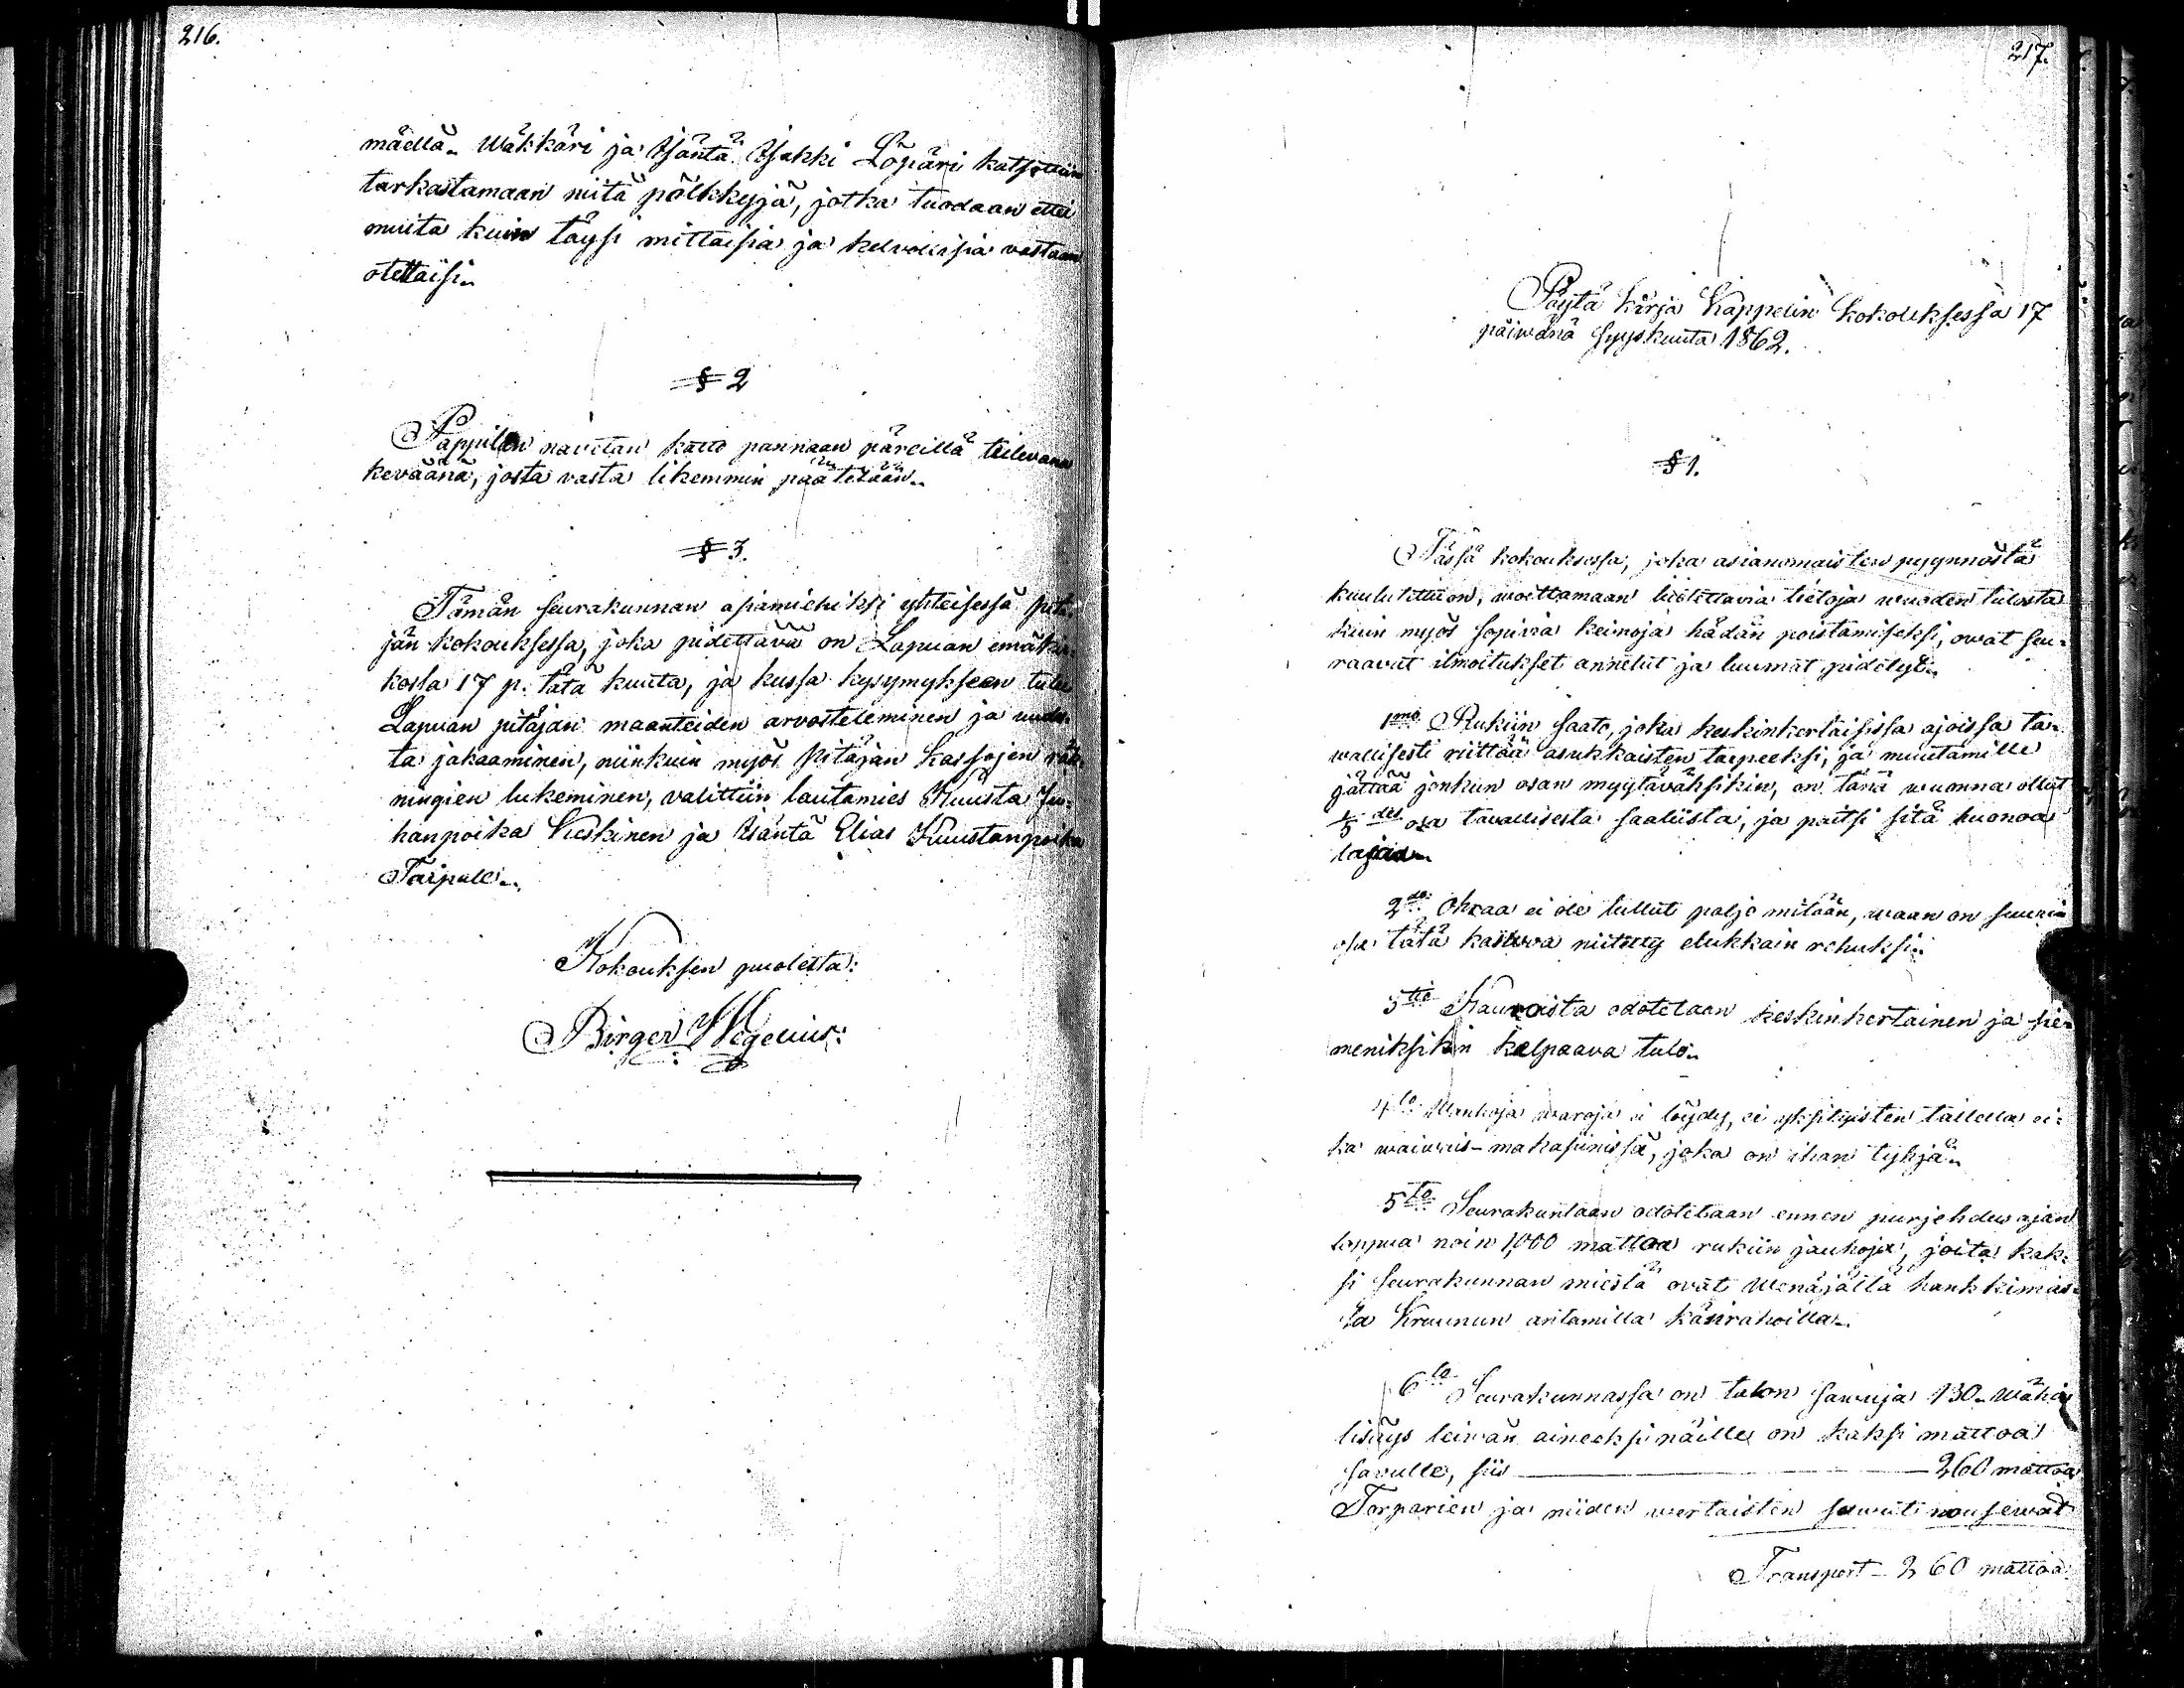 216.
mäellä. Wäkkäri ja Isäntä Isakki Löpäri katsottiin
tarkastamaan niitä pölkkyjä, jotka tuodaan ettei
muita kuin täysi mittaisia ja kelvollisia vastaan
otettaisi.
§ 2
Pappilan navetan katto pannaan päreillä tulevana
keväänä, josta vasta likemmin päätetään.
§ 3.
Tämän seurakunnan asiamiehiksi yhteisessä pitä-
jän kokouksessa, joka pidettävä on Lapuan emäkir-
kossa 17 p. tätä kuuta, ja kussa kysymykseen tulee
Lapuan pitäjän maanteiden arvosteleminen ja uudes-
ta jakaaminen, niinkuin myös Pitäjän Kassojen räk-
ningien lukeminen, valittiin lautamies Kuusta Ju-
hanpoika Keskinen ja Isäntä Elias Kuustanpoika
Taipale.
Kokouksen puolesta:
Birger Hegelius:
217.
Pöytä Kirja Kappelin Kokouksessa 17
päiwänä Syyskuuta 1862.
§ 1.
Tässä kokouksessa, joka asianomaisten pyynnöstä
kuulutettu on, woittamaan luotettavia tietoja wuoden tulosta
kuin myös sopivia keinoja hädän poistamiseksi, owat seu-
raavat ilmoitukset annetut ja luumat pidetyt.
1mo Rukiin saato, joka keskinkertaisissa ajoissa ta-
wallisesti riittää asukkaisten tarpeeksi, ja muutamille
jättää jonkun osan myytäväksikin, on tänä wuonna ollut
des osa tavallisesta saaliista, ja paitsi sitä huonoa
lajia.
2do Ohraa ei ole tullut paljo mitään, waan on suurin
osa tätä kaswoa niitetty elukkain rehuksi.
3tio Kauroista odotetaan keskinkertainen ja sie-
meniksikin kelpaava tulo.
4to Wanhoja waroja ei löydy, ei yksityisten tallella ei-
kä waiwais-makasiinissa, joka on ihan tyhjä.
5to Seurakuntaan odotetaan ennen purjehdus ajan
loppua noin 1,000 mattoa rukiin jauhoja, joita kak-
si seurakunnan miestä ovat Wenäjältä hankkimas-
sa Kruunun antamilla käsirahoilla.
6to Seurakunnassa on talon sawuja 130. Wähin
lisäys leiwän aineeksi näille on kaksi mattoa
savulle, siis — 260 mattoa
Torparien ja niiden wertaisten sawut nousewat
Transport - 260 mattoa